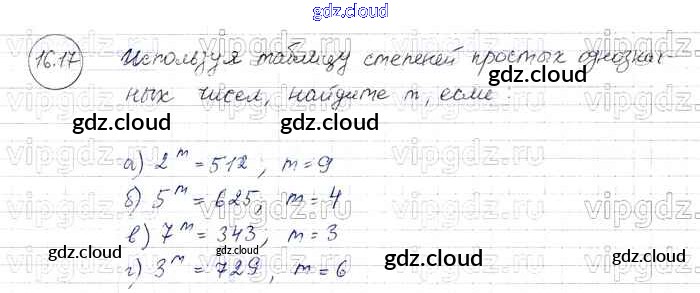 gdz.cloud
16.17 Используя таблицу степеней простых однознач-
ных чисел, найдите m, если:
gdz.cloud
gdz.cloud gdz.cloud
vipgdz.ru vipgdz.ru vipgdz.ru
а) 2^m = 512; m = 9
б) 5^m = 625, m = 4
в) 7^m = 343; m = 3
г) 3^m = 729, m = 6
gdz.cloud gdz.cloud gdz.cloud